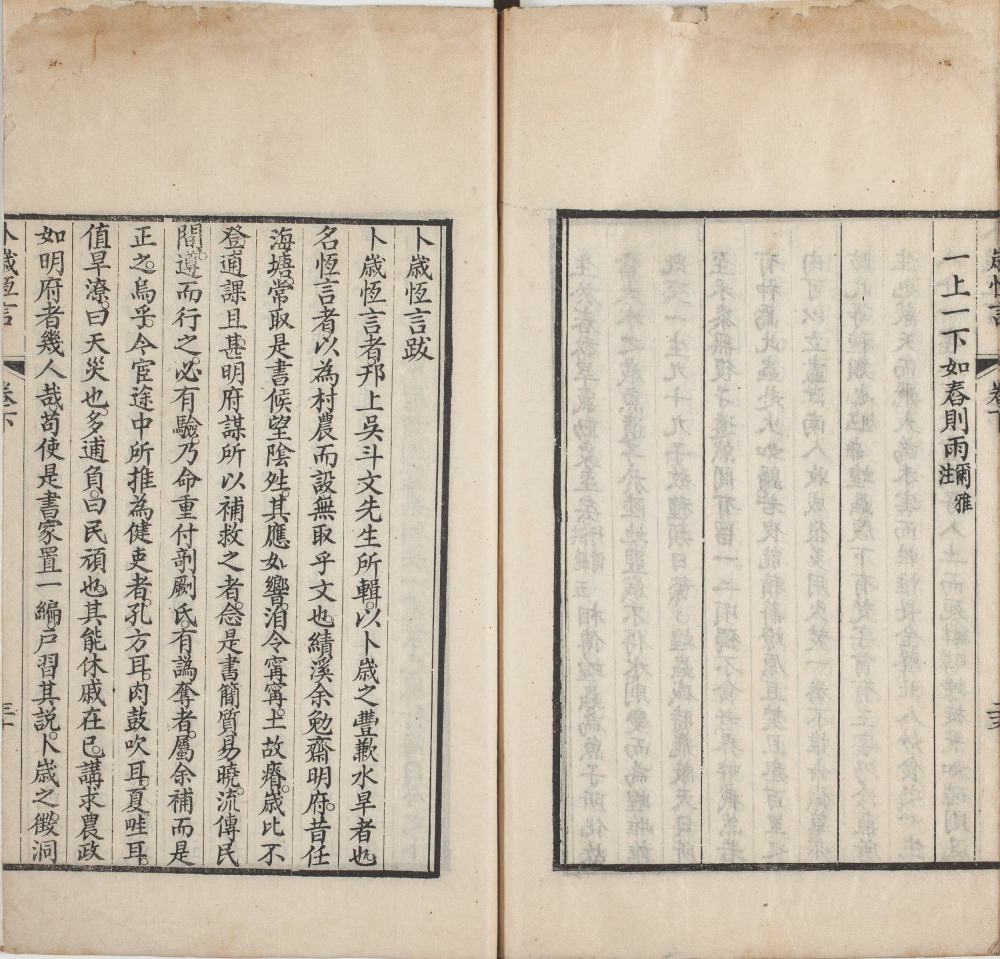 歲恒言
卷下
一上一下如舂則雨爾雅注
卜歲恆言跋
卜歲恆言者邗上吳斗文先生所輯以卜歲之豐歉水旱者也
名恆言者以為村農而設無取乎文也績溪余勉齋明府昔任
海塘常取是書候望陰䧹其應如響洎令甯甯土故瘠歲比不
登逋課且甚明府謀所以補救之者念是書簡質易曉流傳民
間遵而行之必有驗乃命重付剞劂氏有譌奪者屬余補而是
正之烏乎今宦途中所推為健吏者孔方耳肉鼓吹耳夏畦耳
值旱潦曰天災也多逋負曰民頑也其能休戚在己講求農政
如明府者幾人哉苟使是書家置一編戸習其說卜歲之徵洞
卜歲恆言
卷下
三十